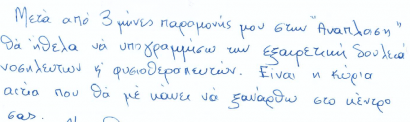 Μετά από 3 μήνες παραμονής μου στην "Ανάπλαση"
θά ήθελα νά υπογραμμίσω την εξαιρετική δουλειά
νοσηλευτών ή φυσιοθεραπευτών. Είναι η κύρια
αιτία που θά μέ κάνει νά ξανάρθω στο κέντρο
σας.